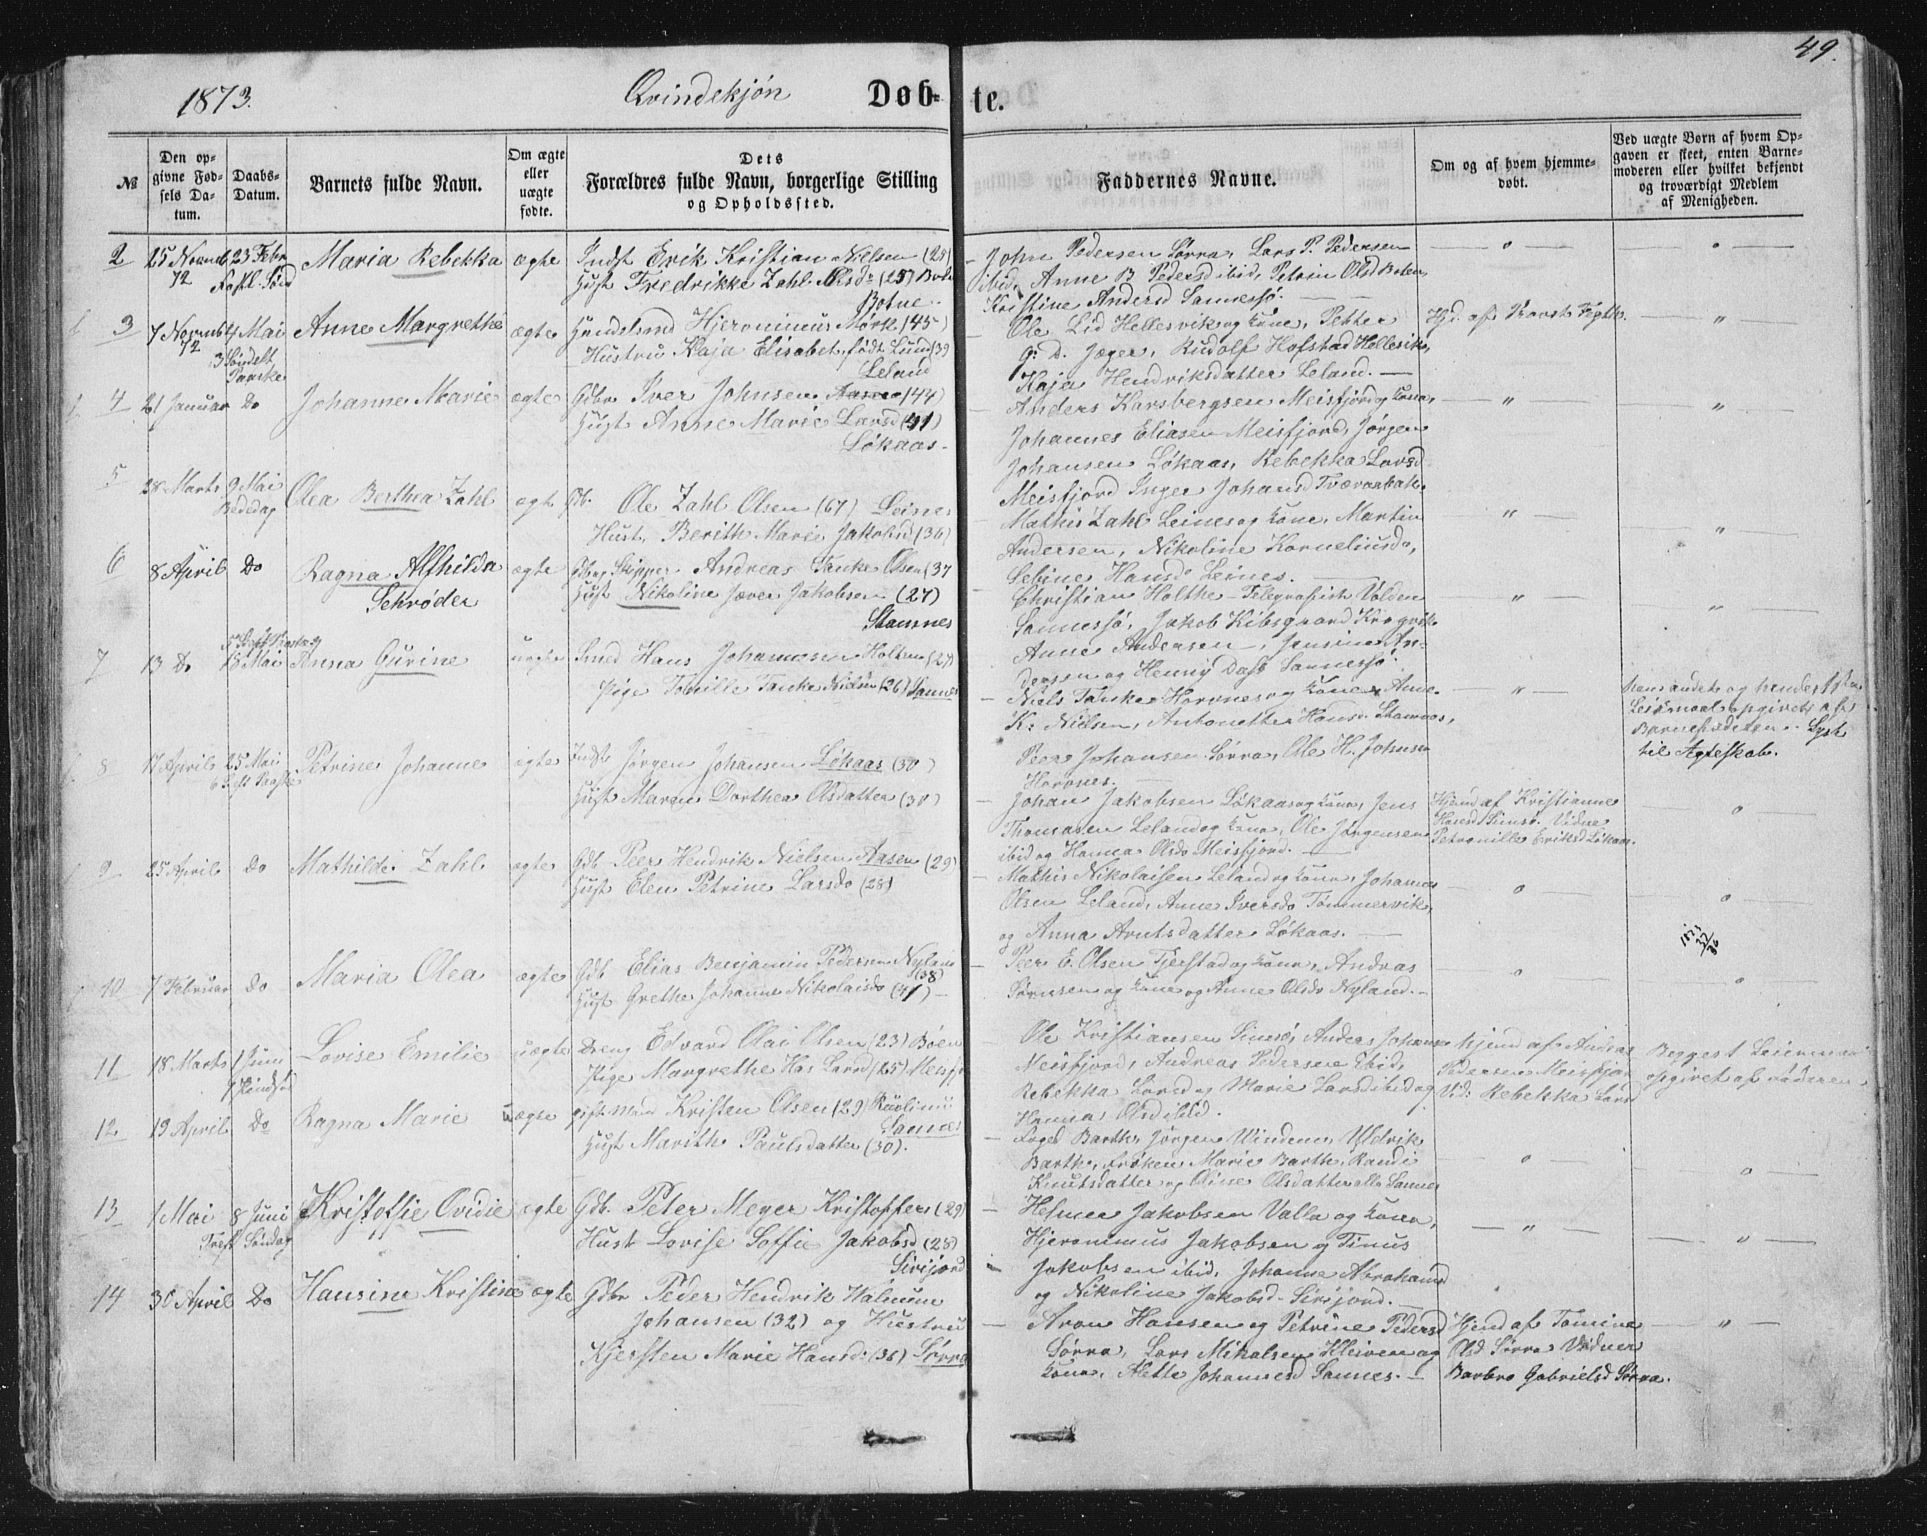 49.
1873. Qvindekjøn Døb- te.
№
Den op-
givne Fød-
sels Da-
tum.
Daabs-
Datum.
Barnets fulde Navn.
Om ægte
eller
uægte
fødte.
Dets
Forældres fulde Navn, borgerlige Stilling
og Opholdssted.
Faddernes Navne.
Om og af hvem hjemme-
døbt.
Ved uægte Børn af hvem Op-
gaven er skeet, enten Barne-
moderen eller hvilket bekjendt
og troværdigt Medlem
af Menigheden.
2 25 Novmb 23 Febr Maria Rebekka ægte Indst Erik Kristian Nielsen
72
Hust Fredrikke Zahl (25)
Botne
John Pedersen Sørra, Lars P. Pedersen
ibid, Anne B Pedersd ibid, Petrin Olsd Boten,
Kristine Andersd Sannessø.
3 7 Novmb 4 Mai Anne Margrethe ægte Handelsmd Hjeronimus Mørk (45)
72
Hustru Kaja Elisabet, født Lund (39
Leland
Ole Lid Hellesvik og Kone, Petter
G. D. Jæger, Rudolf Hofstad Hellesvik,
Kaja Hendriksdatter Leland.
4 21 Januar Do Johanne Marie ægte Gdbr Iver Johnsen (44)
Hust Anne Marie Larsd (41)
Løkaas.
Anders Karsbergsen Meisfjord og Kone,
Johannes Eliasen Meisfjord, Jørgen
Johansen Løkaas, Rebekka Larsd
Meisfjord Inger Johansd
5 28 Marts 9 Mai Olea Berthea Zahl ægte Gb. Ole Zahl Olsen (67) Leines
Bededag
Hust. Berith Marie Jakobsd (36)
Mathis Zahl Leines og Kone, Martin
Andersen, Nikoline Korneliusd,
Sebine Hansd Leines.
6 8 April Do Ragna Alfhilda ægte Skipper Andreas Tanke Olsen (37
Schrøder Hust Nikoline Jæver Jakobsen (27)
Stamnes
Christian Holthe Telegrafist Volden
Sannessø, Jakob Kibsgaard
Anne Andersen, Jensine An-
dersen og Henny Dass Sannessø
7 13 Do 18 Mai Anna Gurine uægte Smed Hans Johannesen Holten (27)
Pige Tobille Tanke Nielsen (26) Sannes
Niels Tanke og Kone, Anne
K. Nielsen, Antonette Hansd. Stamnes,
Peer Johansen Sørra, Ole H. Johnsen
Hans andet og hendes
Leiermaal opgivet af
Barnefaderen. Lyst
til Ægteskab.
8 17 April 25 Mai Petrine Johanne ægte Indst Jørgen Johansen Løkaas (30)
Hust Maren Dorthea Olsdatter (30)
Johan Jakobsen Løkaas og Kone, Jens
Thomasen Leland og Kone, Ole Jørgensen
ibid og Hanna Olsd Meisfjord.
Hjemd af Kristianne
Hansd Vidne
Petronille Eriksd Løkaas.
9 25 April Do Mathilde Zahl ægte Gdb Peer Hendrik Nielsen Aasen (29)
Hust Elen Petrine Larsd (28)
Mathis Nikolaisen Leland og Kone, Johannes
Olsen Leland, Anne Iversd Tømmervik,
og Anna Arntsdatter Løkaas.
10 7 Februar Do Maria Olea ægte Gdb Elias Benjamin Pedersen Nyland
(38)
Hust Grethe Johanne Nikolaisd (41)
Peer E. Olsen Tjerstad og Kone, Andras
Sørnsen og Kone og Anne Olsd Nyland.
11 18 Marts 1 Juni Lovise Emilie uægte Dreng Edvard Olai Olsen (23) Bøen
Pige Margrethe Larsd (25)
Ole Kristiansen Anders Johans
Meisfjord, Andreas Pedersen ibid,
Rebekka Larsd og Marie Larsd ibid og
Hanna Olsd ibid.
Hjemd af Andras
Pedersen Meisfjord
Vid: Rebekka Larsd
Begges 1 Leiermaal
opgivet af Faderen
12 19 April Do Ragna Marie uægte gift Mand Kristen Olsen (29)
Sannes
Hust Marith Paulsdatter (30).
Foged Barth, Jørgen Uldrik
Barth, Frøken Marie Barth, Randi
Knutsdatter og Oline Olsdatter alle Sannes
13 1 Mai 8 Juni Kristoffie Ovidie ægte Gdb. Peter Meyer Kristoffers (29)
Søndag Hust Lovise Soffie Jakobsd (28)
Sirijord
Helmer Jakobsen Valla og Kone,
Hjeronimus Jakobsen og Tinus
Jakobsen ibid, Johanne Abrahamsd
og Nikoline Jakobsd. Sirijord.
14 30 April Do Hansine Kristine ægte Gdbr Peder Hendrik
Johansen (32) og Hustru
Kjersten Marie Hansd (36) Sørra
Aron Hansen og Petrine Pedersd
Sørra, Lars Mikalsen Kleiven og
Kone, Alette Johannesd Sannes.
Hjemd af Tomine
Olsd Sørra Vidner
Barbro Gabrielsd Sørra.